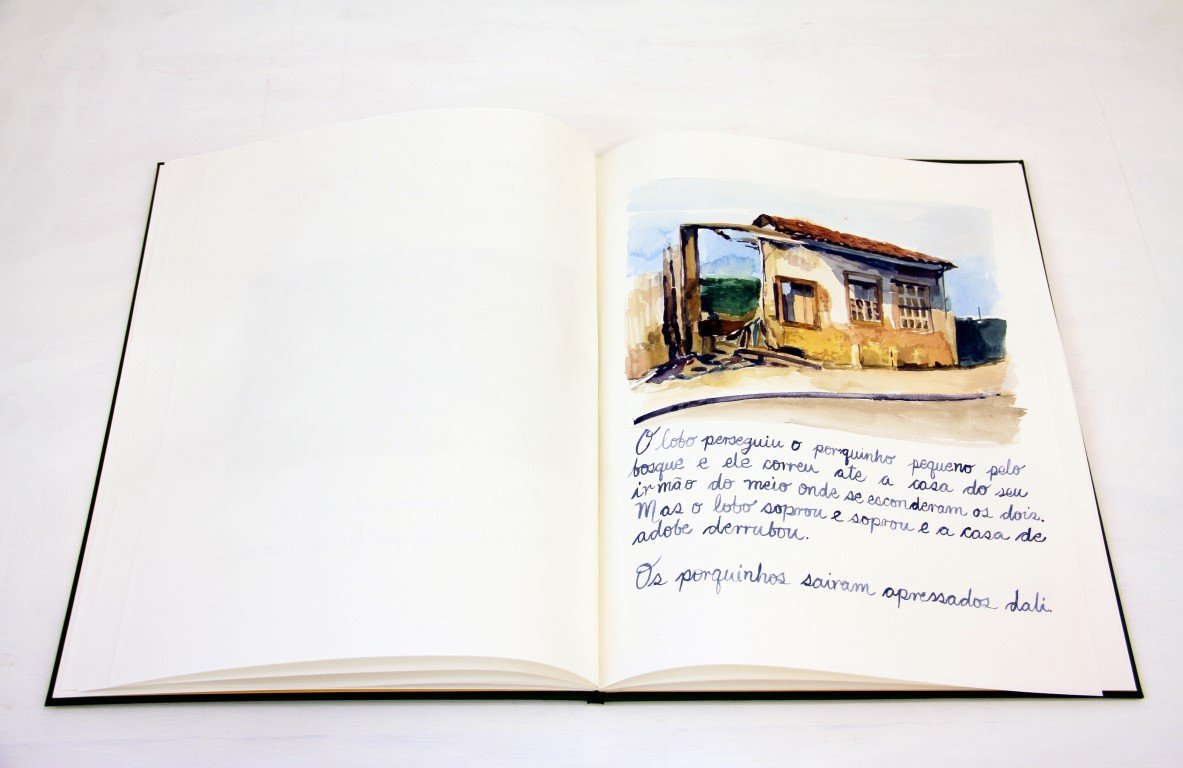 O lobo perseguiu o porquinho pequeno pelo
bosque e ele correu ate a casa do seu
irmão do meio onde se esconderam os dois.
Mas o lobo soprou e soprou e a casa de
adobe derrubou.
Os porquinhos sairam apressados dali.